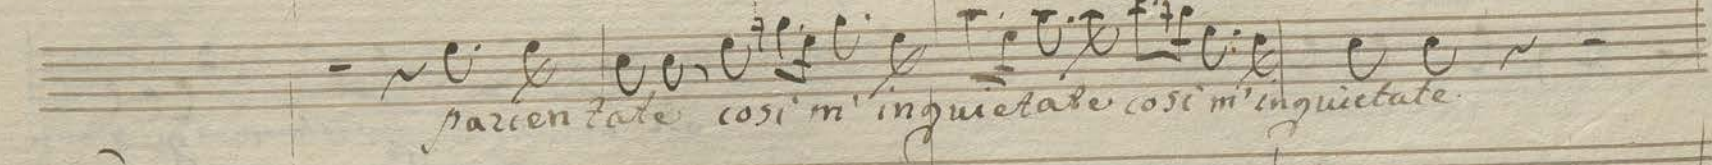 pazientate così m'inquietate così m'inquietate.